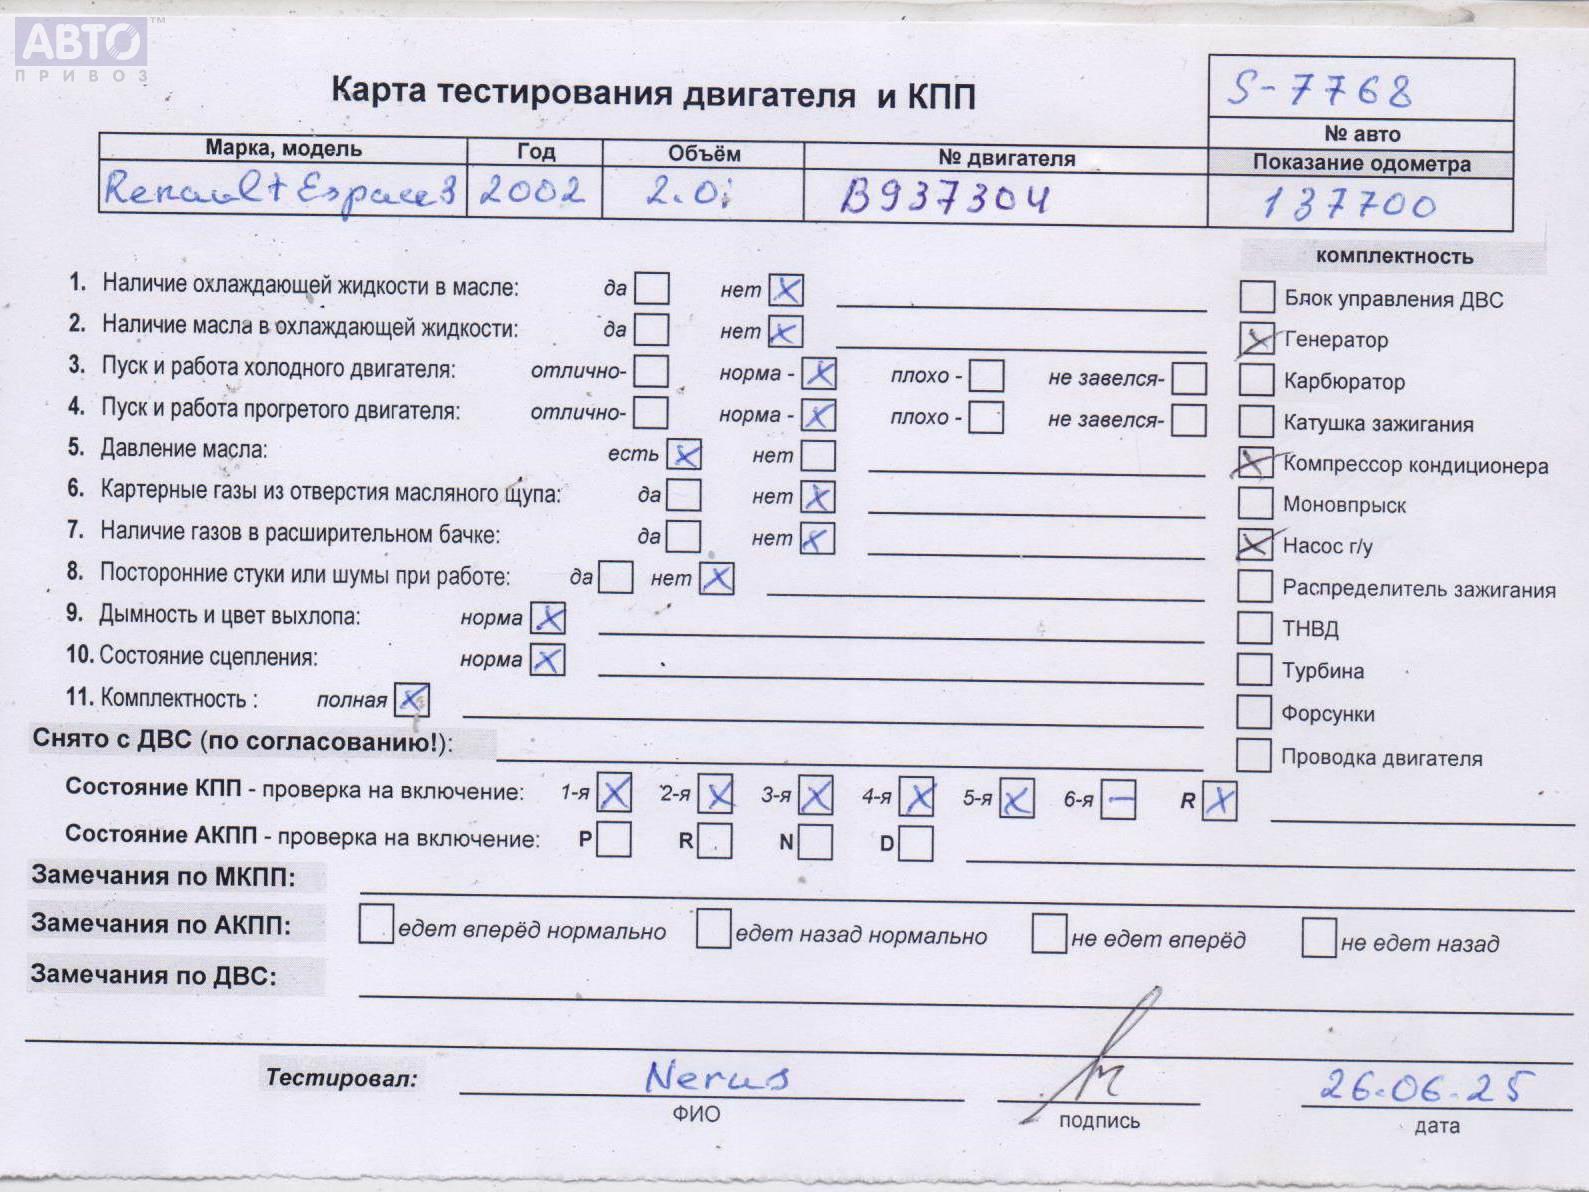 АВТО™
ПРИВОЗ
Карта тестирования двигателя и КПП
S-7768
№ авто
Марка, модель Год Объём № двигателя Показание одометра
Renault Espace3 2002 2.0i B937304 137700
комплектность
1. Наличие охлаждающей жидкости в масле: да нет X
Блок управления ДВС
2. Наличие масла в охлаждающей жидкости: да нет X
X Генератор
3. Пуск и работа холодного двигателя: отлично- норма - X плохо - не завелся-
Карбюратор
4. Пуск и работа прогретого двигателя: отлично- норма - X плохо - не завелся-
Катушка зажигания
5. Давление масла: есть X нет
X Компрессор кондиционера
6. Картерные газы из отверстия масляного щупа: да нет X
Моновпрыск
7. Наличие газов в расширительном бачке: да нет X
X Насос г/у
8. Посторонние стуки или шумы при работе: да нет X
Распределитель зажигания
9. Дымность и цвет выхлопа: норма X
ТНВД
10. Состояние сцепления: норма X
Турбина
11. Комплектность : полная X
Форсунки
Снято с ДВС (по согласованию!):
Проводка двигателя
Состояние КПП - проверка на включение: 1-я X 2-я X 3-я X 4-я X 5-я X 6-я – R X
Состояние АКПП - проверка на включение: P R N D
Замечания по МКПП:
Замечания по АКПП: едет вперёд нормально едет назад нормально не едет вперёд не едет назад
Замечания по ДВС:
Тестировал: Nerus 26.06.25
ФИО подпись дата